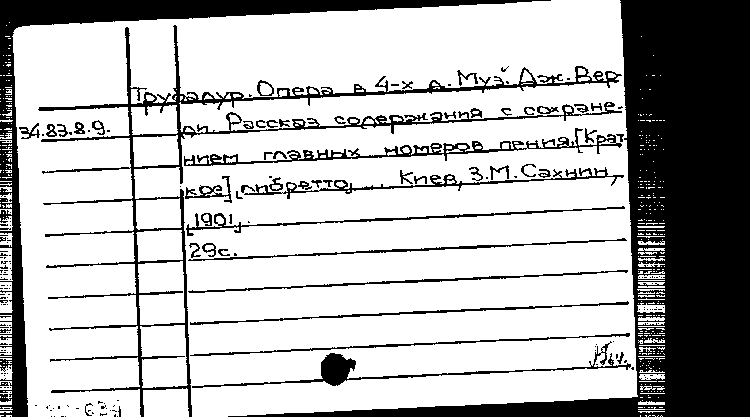 Трубадур. Опера в 4-х д. Муз. Дж. Вер-
34.83.8.9.
ди. Рассказ содержания с сохране-
нием главных номеров пения. [Крат-
кое] либретто, ... Киев, З.М. Сахнин,
[1901].
29с.